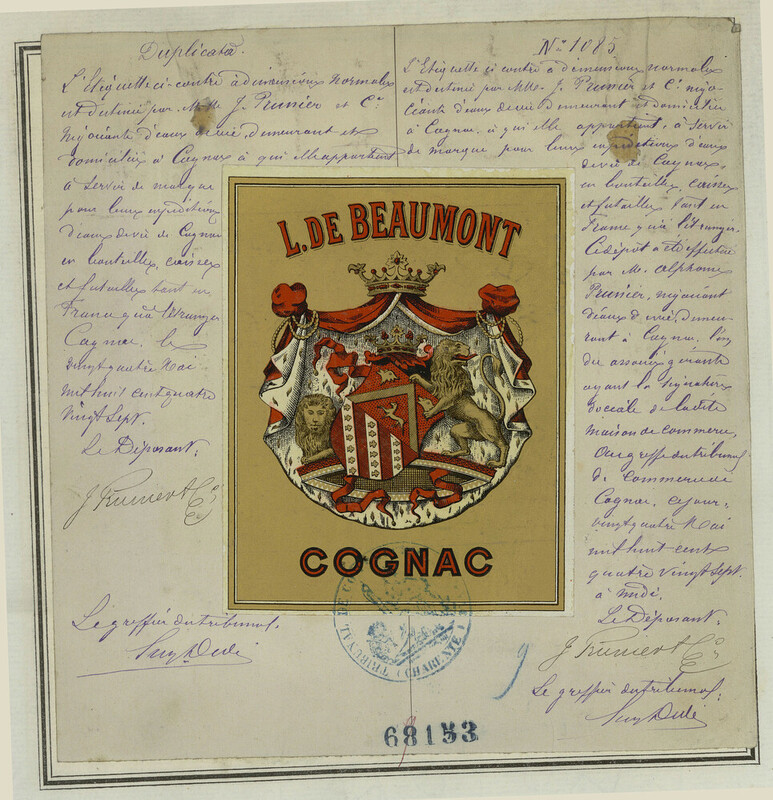 Duplicata.
L'Etiquette ci-contre à dimensions normales
est destinée par MMrs J. Prunier et Cie
négociants d'eaux de vie, demeurant et
domiciliés à Cognac à qui elle appartient
à servir de marque
pour leurs expéditions
d'eaux de vie de Cognac
en bouteilles, caisses
et futailles tant en
France qu'à l'étranger
Cognac, le
vingt quatre Mai
mil huit cent quatre
vingt sept.
Le Déposant,
J. Prunier & Cie
Le greffier du tribunal,
L. DE BEAUMONT
COGNAC
TRIBUNAL DE CO
(CHARENTE)
68153
No 1085
L'Etiquette ci contre à dimensions normales
est destinée par MMrs J. Prunier et Cie négo-
ciants d'eaux de vie demeurant et domiciliés
à Cognac, à qui elle appartient, à servir
de marque pour leurs expéditions d'eaux
de vie de Cognac,
en bouteilles, caisses
et futailles tant en
France qu'à l'étranger.
Ce dépôt a été effectué
par M. Alphonse
Prunier, négociant
d'eaux de vie, demeu-
rant à Cognac, l'un
des associés gérants
ayant la signature
sociale de la dite
maison de commerce,
Au greffe du tribunal
de Commerce de
Cognac, ce jour,
vingt quatre Mai
mil huit cent
quatre vingt sept.
à midi.
Le Déposant,
J. Prunier & Cie
Le greffier du tribunal,